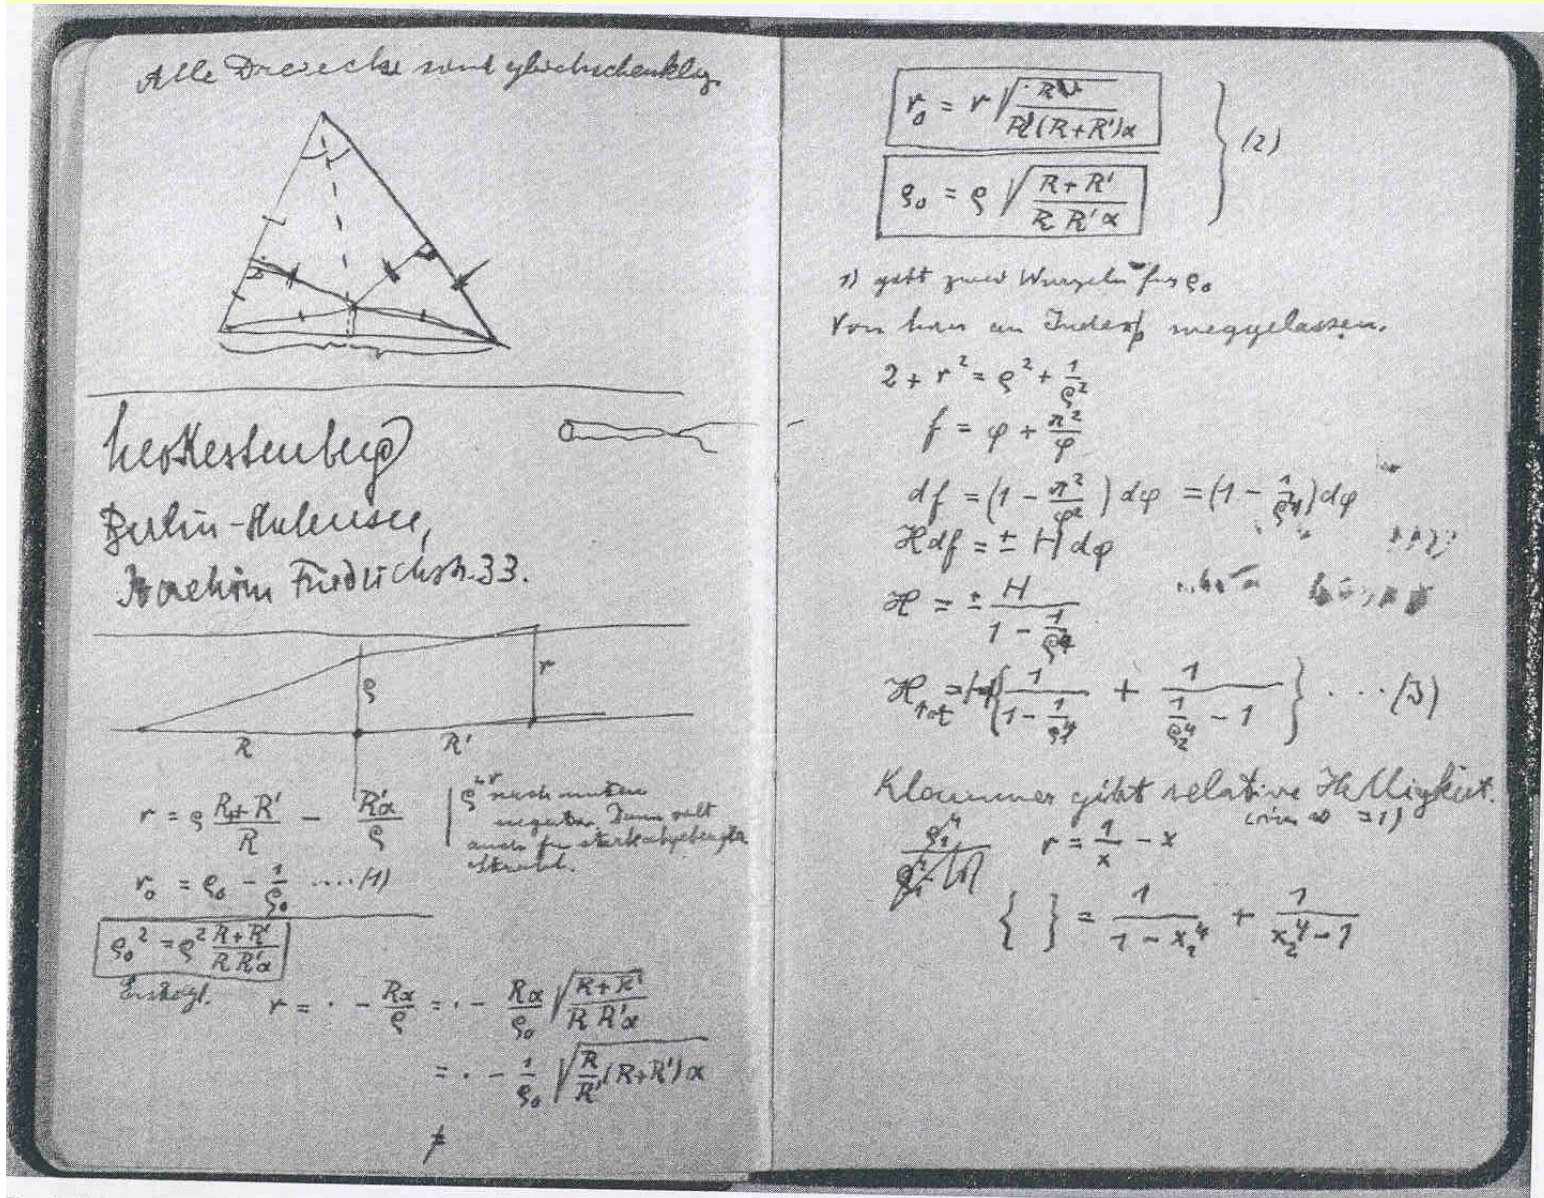 Alle Dreiecke sind gleichschenklig.
Leo Kestenberg
Berlin-Halensee,
Joachim Friedrichstr. 33.
ρ
r
R
R'
r = ρ (R+R')/R − R'α/ρ
nach unten
negativ. Dann gilt
auch für stark abgebeugte
Strahl.
r₀ = ρ₀ − 1/ρ₀ ....(1)
ρ₀² = ρ² (R+R')/(R R'α)
r = · − Rα/ρ = · − Rα/ρ₀ √((R+R')/(R R'α))
= · − 1/ρ₀ √(R/R' (R+R')α)
r₀ = r √(R/(R'(R+R')α))
ρ₀ = ρ √((R+R')/(R R'α))
} (2)
1) gibt zwei Wurzeln für ρ₀
Von hier an Index weggelassen.
2 + r² = ρ² + 1/ρ²
f = φ + π²/φ
df = (1 − π²/φ²) dφ = (1 − 1/ρ⁴) dφ
H df = ± H dφ
H = ± H/(1 − 1/ρ⁴)
H_tot = H {1/(1 − 1/ρ₁⁴) + 1/(1/ρ₂⁴ − 1)} .... (3)
Klammer gibt relative Helligkeit.
(in ∞ = 1)
r = 1/x − x
{ } = 1/(1 − x₁⁴) + 1/(x₂⁴ − 1)